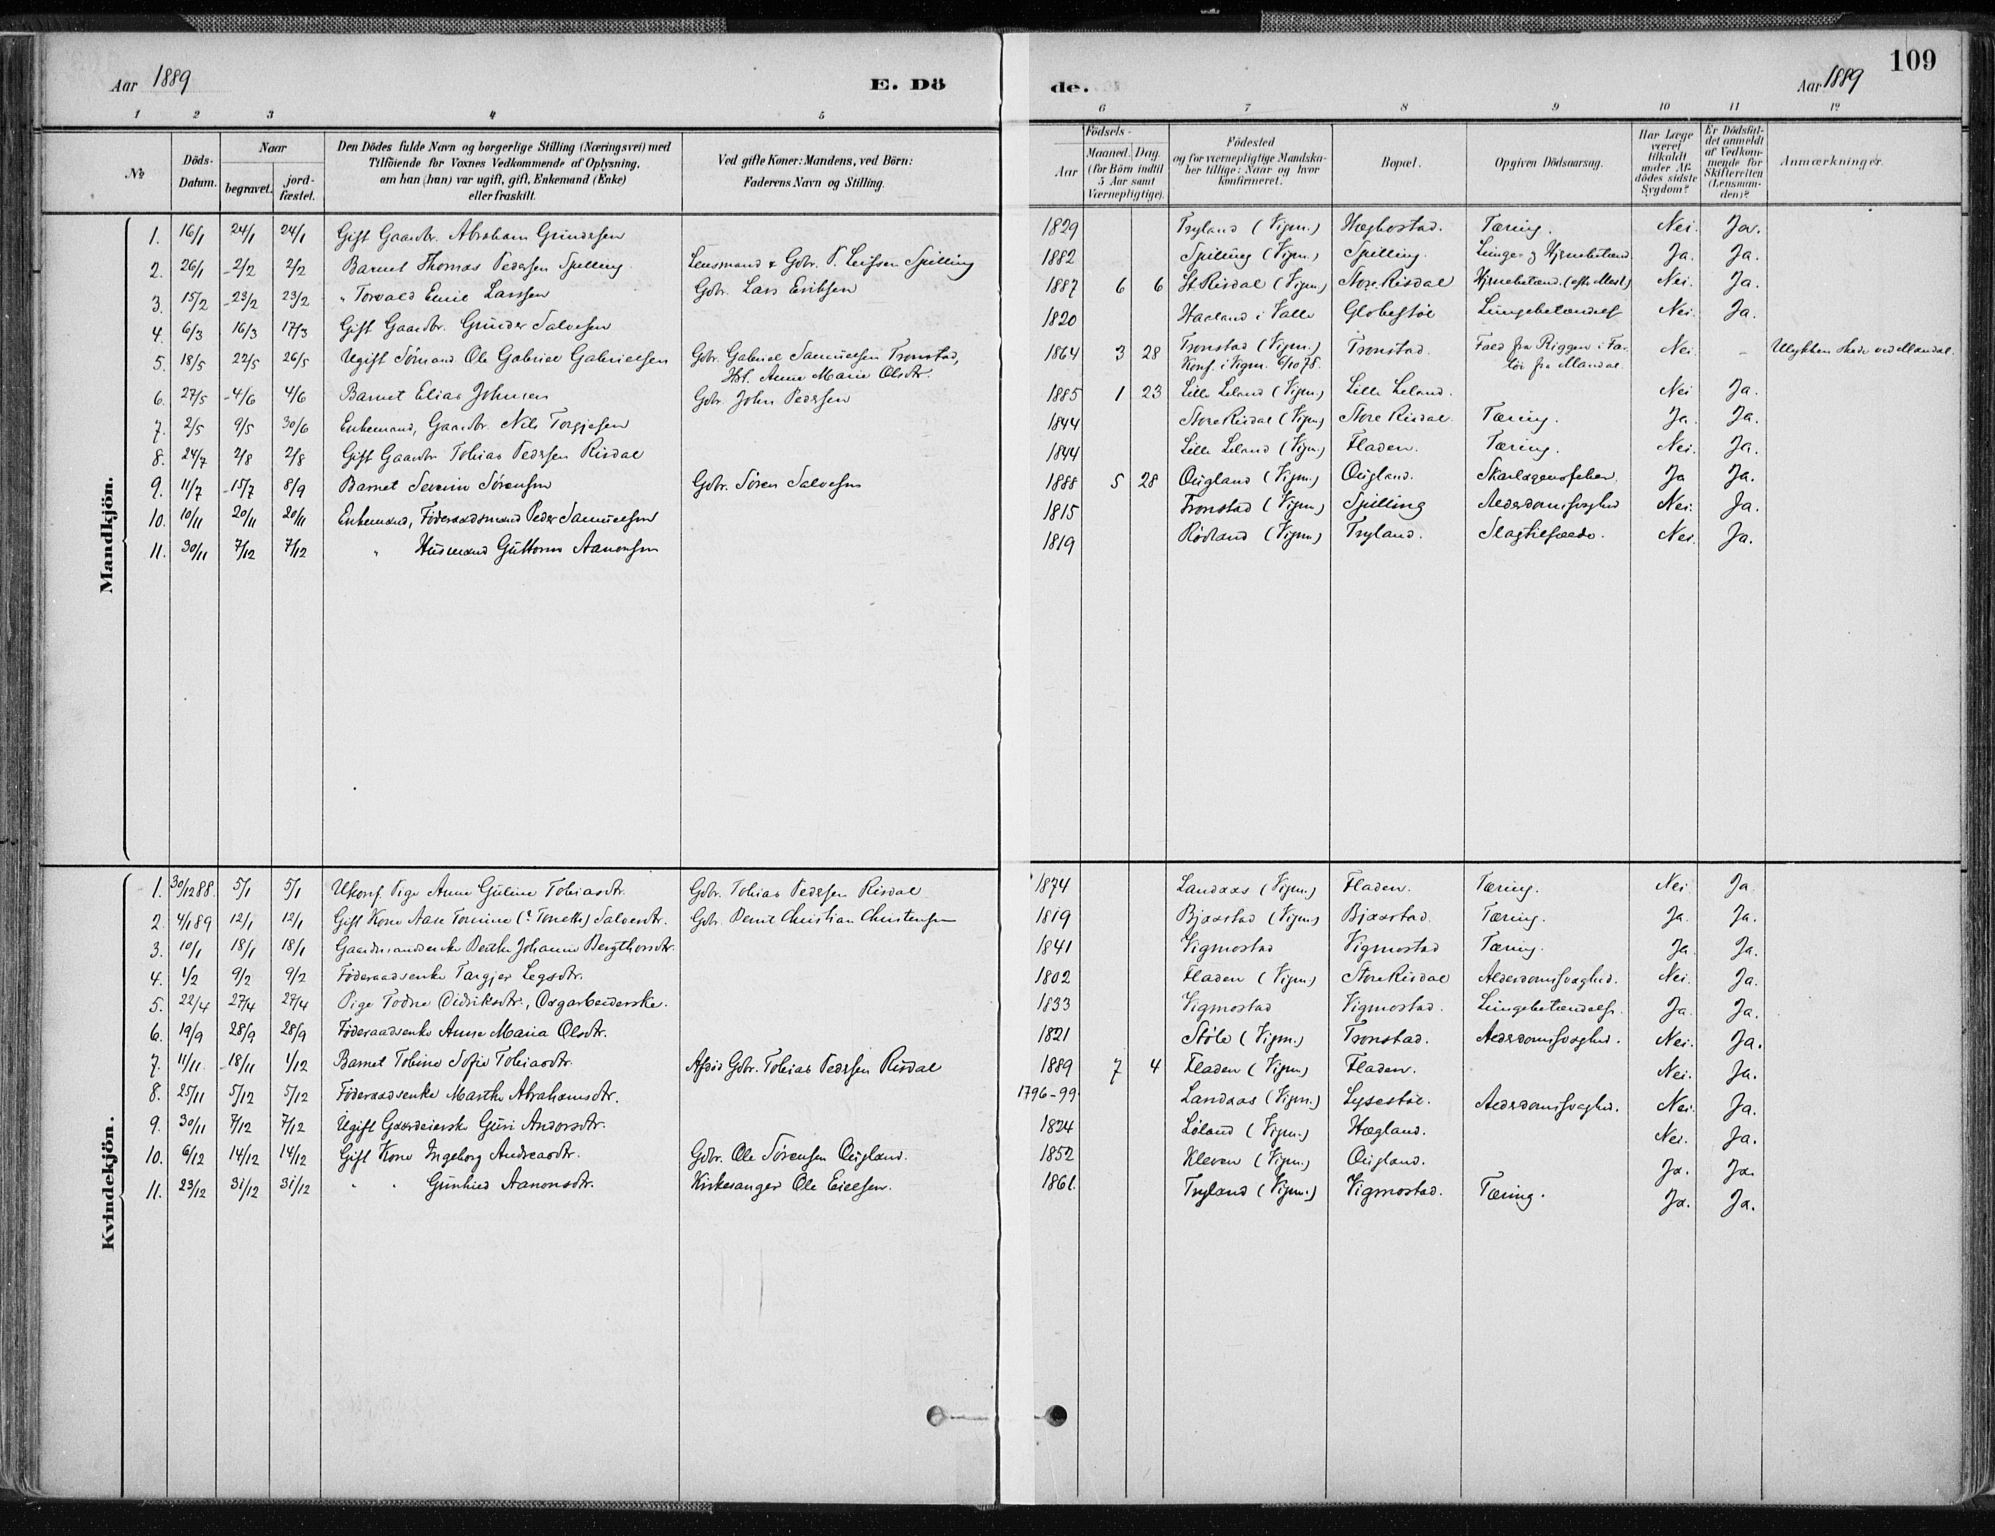 109
Aar 1889 E. Dö de. Aar 1889
1 2 3 4 5 6 7 8 9 10 11 12
No
Döds-Datum.
Naar
begravet.
jord-fæstet.
Den Dödes fulde Navn og borgerlige Stilling (Næringsvei) med
Tilföiende for Voxnes Vedkommende af Oplysning,
om han (hun) var ugift, gift, Enkemand (Enke)
eller fraskilt.
Ved gifte Koner: Mandens, ved Börn:
Faderens Navn og Stilling.
Födsels-
Aar
Maaned. Dag.
(for Börn indtil
5 Aar samt
Værnepligtige).
Födested
og for værnepligtige Mandska-
ber tillige: Naar og hvor
konfirmeret.
Bopæl.
Opgiven Dödsaarsag.
Har Læge
været
tilkaldt
under Af-
dödes sidste
Sygdom?
Er Dödsfal-
det anmeldt
af Vedkom-
mende for
Skifteretten
(Lensman-
den)?
Anmærkninger.
Mandkjön.
1. 16/1 24/1 24/1 Gift Gaardbr. Abraham Gundersen 1829 Tryland (Vigm.) Hægbostad. Tæring. Nei. Ja.
2. 26/1 -2/2 2/2 Barnet Thomas Pedersen Spilling Lensmand & Gbr. P. Leifsen Spilling 1882 Spilling (Vigm.) Spilling. Lunge- og Hjernebetænd Ja. Ja.
3. 15/2 -23/2 23/2 " Torvald Emil Larssen Gbr. Lars Eriksen 1887 6 6 St. Risdal (Vigm.) Store Risdal Hjernebetænd. (efter Mesl.) Nei. Ja.
4. 6/3 16/3 17/3 Gift Gaardbr. Gunder Salvesen 1820 Haaland i Valle Globestøl Lungebetændelse Nei. Ja.
5. 18/5 22/5 26/5 Ugift Sømand Ole Gabriel Gabrielsen Gbr. Gabriel Samuelsen Tronstad, 1864 3 28 Tronstad (Vigm.) Tronstad. Fald fra Riggen i Fa- Nei. - Ulykken skede ved Mandal.
Hst. Anne Marie Olsdtr. Konf. i Vigm. 6/10 78. tøi fra Mandal.
6. 27/5 -4/6 4/6 Barnet Elias Johnsen Gbr. John Pedersen 1885 1 23 Lille Leland (Vigm.) Lille Leland. Nei Ja.
7. 2/5 9/5 30/6 Enkemand, Gaardbr. Nils Torgjesen 1844 Store Risdal (Vigm.) Store Risdal. Tæring. Ja. Ja.
8. 24/7 2/8 2/8 Gift Gaardbr Tobias Pedersen Risdal 1844 Lille Leland (Vigm.) Fladen. Tæring. Nei. Ja.
9. 11/7 -15/7 8/9 Barnet Severin Sørensen Gbr. Søren Salvesen 1888 5 28 Øugland (Vigm.) Øugland. Skarlagensfeber. Ja Ja.
10. 10/11 20/11 20/11 Enkemand, Føderaadsmand Peder Samuelsen 1815 Tronstad (Vigm.) Spilling Alderdomssvaghed Nei. Ja.
11. 30/11 7/12 7/12 " Husmand Guttorm Aanonsen 1819 Rødland (Vigm.) Tryland. Slagtilfælde. Nei. Ja.
Kvindekjön.
1. 30/12 88. 5/1 5/1 Ukonf. Pige Anne Guline Tobiasdtr. Gbr. Tobias Pedersen Risdal 1874 Landaas (Vigm.) Fladen. Tæring. Nei. Ja
2. 4/1 89 12/1 12/1 Gift Kone Aase Tomine (: Toneth) Salvesdtr. Gbr. Bernt Christian Christensen 1819 Bjaastad (Vigm.) Bjaastad. Tæring. Ja. Ja.
3. 10/1 18/1 18/1 Gaardmandsenke Berthe Johanne Bergthorsdtr. 1841 Vigmostad Vigmostad Tæring. Ja. Ja.
4. 1/2 9/2 9/2 Føderaadsenke Targjer Legsdtr. 1802 Fladen (Vigm) Store Risdal Alderdomssvaghed. Nei. Ja.
5. 22/4 27/4 27/4 Pige Todne Didriksdtr., Dagarbeiderske. 1833 Vigmostad Vigmostad. Lungebetændelse. Ja. Ja.
6. 19/9 28/9 28/9 Føderaadsenke Anne Maria Olsdtr. 1821 Støle (Vigm.) Tronstad. Alderdomssvaghed. Nei. Ja.
7. 11/11 -18/11 1/12 Barnet Tobine Sofie Tobiasdtr. Afdød Gbr. Tobias Pedersen Risdal 1889 7 4 Fladen (Vigm) Fladen. Nei. Ja.
8. 25/11 5/12 5/12 Føderaadsenke Marthe Abrahamsdtr. 1796-99 Landaas (Vigm.) Lysestøl. Alderdomssvaghed. Nei. Ja.
9. 30/11 7/12 7/12 Ugift Gaardeierske Guri Andorsdtr. 1824 Løland (Vigm.) Hægland. Nei. Ja.
10. 6/12 14/12 14/12 Gift Kone Ingeborg Andreasdtr. Gbr. Ole Sørensen Øugland. 1852 Kleven (Vigm.) Øugland. Ja. Ja.
11. 23/12 31/12 31/12 " " Gunhild Aanonsdtr. Kirkesanger Ole Eielsen. 1861. Tryland (Vigm.) Vigmostad. Tæring. Ja. Ja.